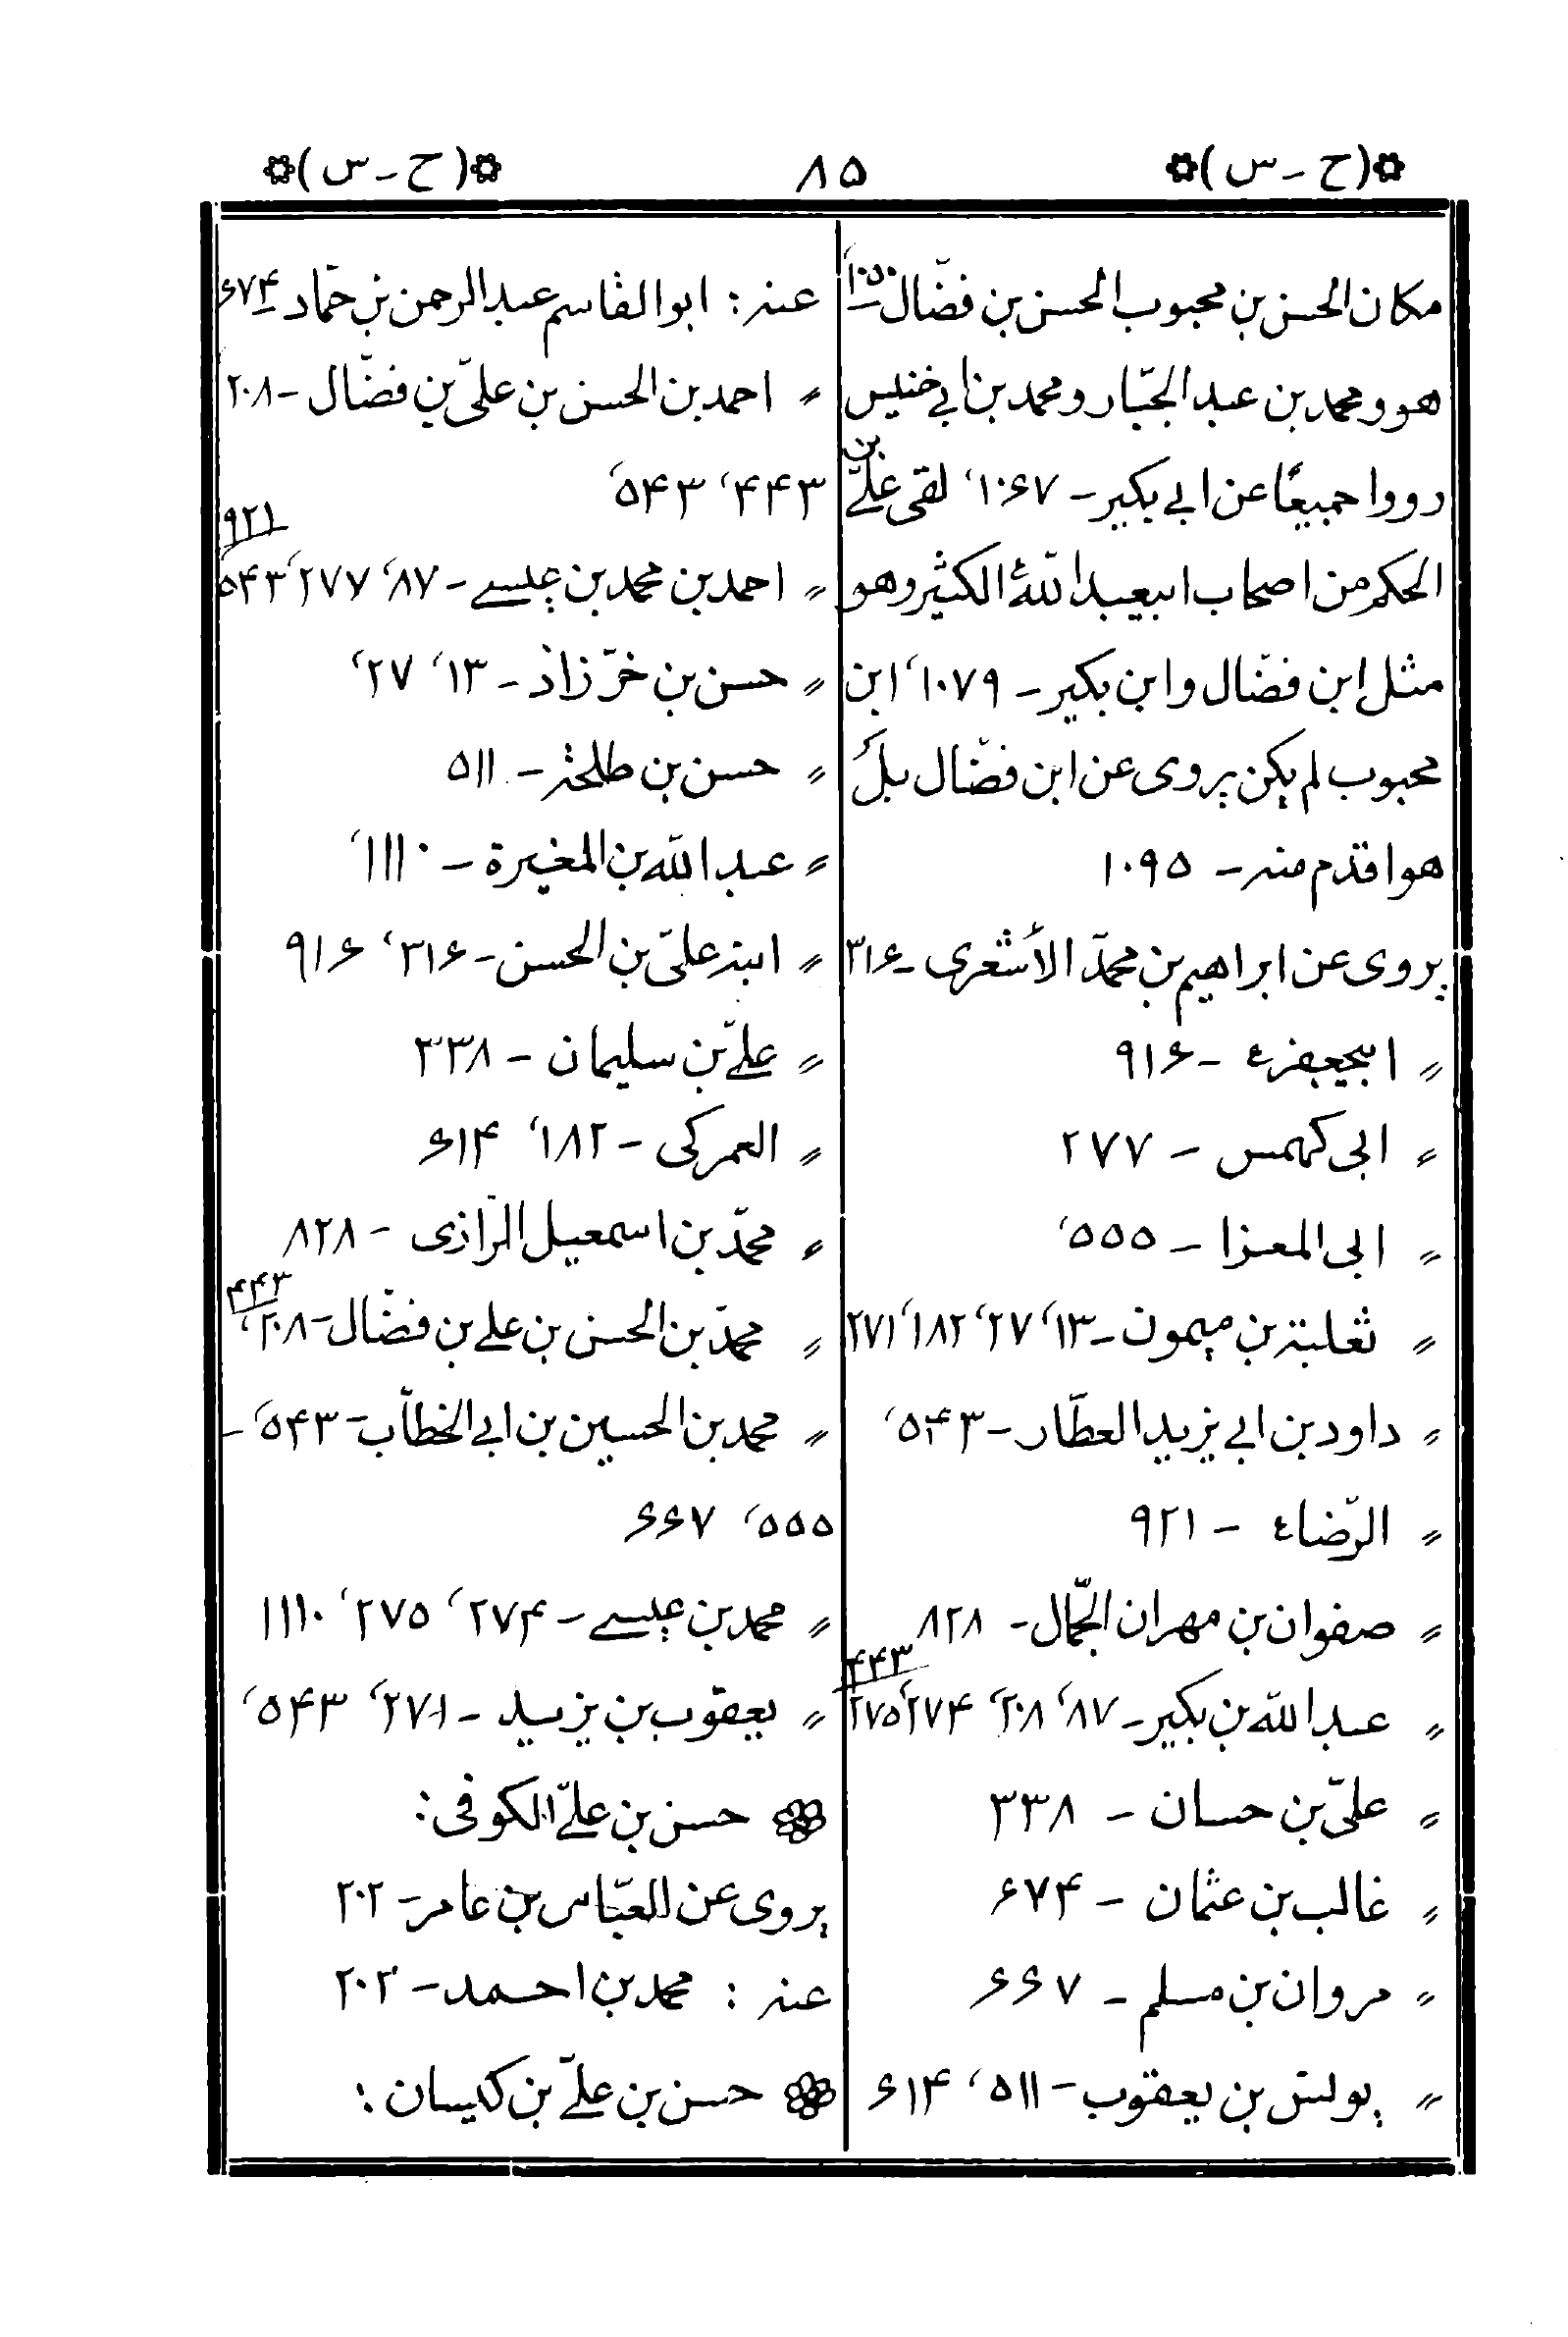 (ح-س) ۸۵ (ح-س)
مکان الحسن بن محبوب الحسن بن فضّال - ۱۰۵۰،
هو و محمد بن عبد الجبّار و محمد بن ابی خنیس
رووا جمیعًا عن ابی بکیر - ۱۰۶۷، لقی علیّ بن
الحکم من اصحاب ابیعبد اللهؑ الکثیر وهو
مثل ابن فضّال وابن بکیر - ۱۰۷۹، ابن
محبوب لم یکن یروی عن ابن فضّال بل
هو اقدم منه - ۱۰۹۵
یروی عن ابراهیم بن محمّد الأشعری - ۳۱۶
〃 ابیجعفرع - ۹۱۶
〃 ابی کهمس - ۲۷۷
〃 ابی المعزا - ۵۵۵،
〃 ثعلبة بن میمون - ۱۳، ۲۷، ۱۸۲، ۲۷۱
〃 داود بن ابی یزید العطّار - ۵۴۳،
〃 الرّضاع - ۹۲۱
〃 صفوان بن مهران الجمّال - ۸۲۸
〃 عبد الله بن بکیر - ۸۷، ۲۰۸، ۲۷۴، ۲۷۵، ۴۴۳
〃 علیّ بن حسان - ۳۳۸
〃 غالب بن عثمان - ۶۷۴
〃 مروان بن مسلم - ۶۶۷
〃 یونس بن یعقوب - ۵۱۱، ۶۱۴
عنه : ابو القاسم عبد الرحمن بن حمّاد - ۶۷۴
〃 احمد بن الحسن بن علیّ بن فضّال - ۲۰۸
۴۴۳، ۵۴۳،
〃 احمد بن محمد بن عیسی - ۸۷، ۲۷۷، ۵۴۳، ۹۲۱
〃 حسن بن خرّزاذ - ۱۳، ۲۷،
〃 حسن بن طلحة - ۵۱۱
〃 عبد الله بن المغیرة - ۱۱۱۰،
〃 ابنه علیّ بن الحسن - ۳۱۶، ۹۱۶
〃 علیّ بن سلیمان - ۳۳۸
〃 العمرکی - ۱۸۲، ۶۱۴
〃 محمّد بن اسمعیل الرّازی - ۸۲۸
〃 محمّد بن الحسن بن علی بن فضّال - ۲۰۸، ۴۴۳
〃 محمد بن الحسین بن ابی الخطّاب - ۵۴۳، -
۵۵۵، ۶۶۷
〃 محمد بن عیسی - ۲۷۴، ۲۷۵، ۱۱۱۰
〃 یعقوب بن یزید - ۲۷۱، ۵۴۳،
حسن بن علیّ الکوفی :
یروی عن العبّاس بن عامر - ۲۰۲
عنه : محمد بن احمد - ۲۰۲
حسن بن علیّ بن کیسان :